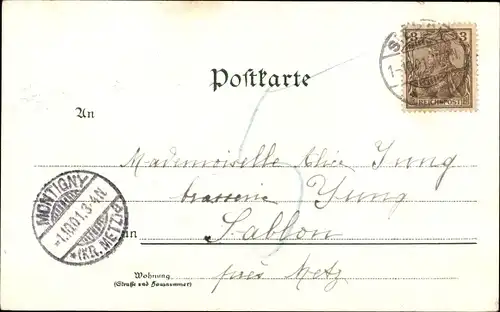 3 3
REICHSPOST
Postkarte
An
Mademoiselle Alice Jung
brasserie Jung
in Sablon
près Metz
MONTIGNY
-1.10.01.3-4N
*(KR. METZ)*
Wohnung
(Straße und Hausnummer)